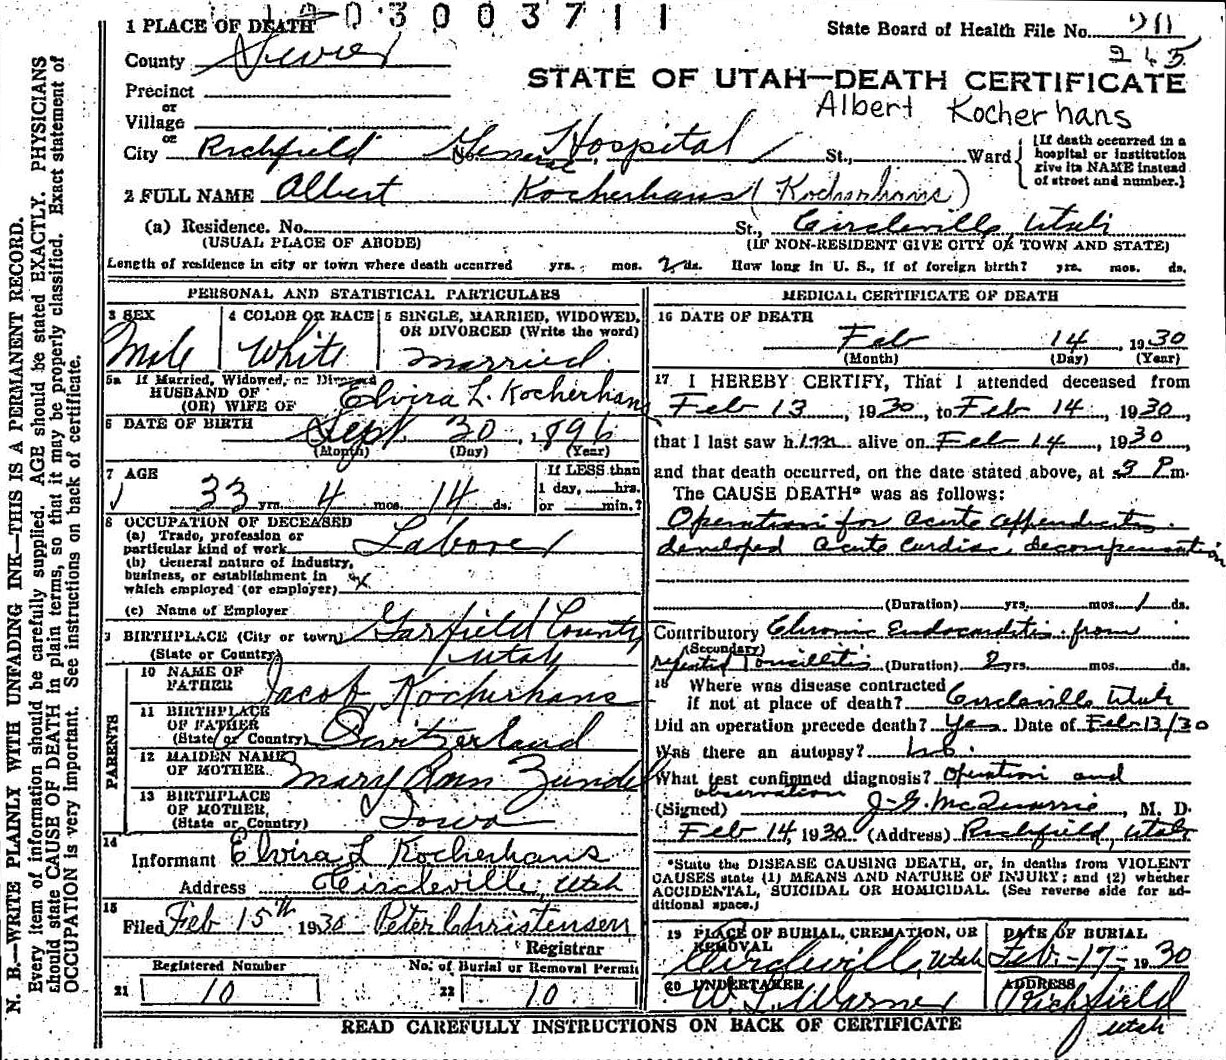 12-03003711
1 PLACE OF DEATH
State Board of Health File No. 20
County Sevier
245
Precinct
STATE OF UTAH—DEATH CERTIFICATE
or
Village
Albert Kocherhans
or
City Richfield No. General Hospital St., Ward
[If death occurred in a hospital or institution give its NAME instead of street and number.]
2 FULL NAME Albert Kocherhans (Kocherhans)
(a) Residence. No. St., Circleville, Utah
(USUAL PLACE OF ABODE) (IF NON-RESIDENT GIVE CITY OR TOWN AND STATE)
Length of residence in city or town where death occurred yrs. mos. 2 ds. How long in U. S., if of foreign birth? yrs. mos. ds.
PERSONAL AND STATISTICAL PARTICULARS
3 SEX Male
4 COLOR OR RACE White
5 SINGLE, MARRIED, WIDOWED, OR DIVORCED (Write the word) Married
5a If Married, Widowed, or Divorced
HUSBAND OF
(OR) WIFE OF Elvira L. Kocherhans
6 DATE OF BIRTH Sept. 30, 1896
(Month) (Day) (Year)
7 AGE 33 yrs. 4 mos. 14 ds.
If LESS than 1 day, hrs. or min.?
8 OCCUPATION OF DECEASED
(a) Trade, profession or particular kind of work Laborer
(b) General nature of industry, business, or establishment in which employed (or employer) x
(c) Name of Employer
9 BIRTHPLACE (City or town) Garfield County
(State or Country) Utah
PARENTS
10 NAME OF FATHER Jacob Kocherhans
11 BIRTHPLACE OF FATHER (State or Country) Switzerland
12 MAIDEN NAME OF MOTHER Mary Ann Zundel
13 BIRTHPLACE OF MOTHER (State or Country) Iowa
14
Informant Elvira L Kocherhans
Address Circleville, Utah
15
Filed Feb 15th 1930 Peter Christensen
Registrar
Registered Number
21 10
No. of Burial or Removal Permit
22 10
MEDICAL CERTIFICATE OF DEATH
16 DATE OF DEATH
Feb 14, 1930
(Month) (Day) (Year)
17 I HEREBY CERTIFY, That I attended deceased from
Feb 13, 1930, to Feb 14, 1930,
that I last saw him alive on Feb 14, 1930
and that death occurred, on the date stated above, at 3 P.m.
The CAUSE DEATH* was as follows:
Operation for acute appendicitis.
developed acute cardiac decompensation
(Duration) yrs. mos. 1 ds.
Contributory Chronic Endocarditis from
(Secondary)
repeated Toncillitis (Duration) 2 yrs. mos. ds.
18 Where was disease contracted
if not at place of death? Circleville Utah
Did an operation precede death? Yes Date of Feb 13/30
Was there an autopsy? No.
What test confirmed diagnosis? Operation and
observation
(Signed) J. G. McQuarrie, M. D.
Feb 14, 1930 (Address) Richfield, Utah
*State the DISEASE CAUSING DEATH, or, in deaths from VIOLENT
CAUSES state (1) MEANS AND NATURE OF INJURY; and (2) whether
ACCIDENTAL, SUICIDAL OR HOMICIDAL. (See reverse side for ad-
ditional space.)
19 PLACE OF BURIAL, CREMATION, OR REMOVAL Circleville, Utah
DATE OF BURIAL Feb-17-1930
20 UNDERTAKER W. L. Warner
ADDRESS Richfield Utah
READ CAREFULLY INSTRUCTIONS ON BACK OF CERTIFICATE
N. B.—WRITE PLAINLY WITH UNFADING INK—THIS IS A PERMANENT RECORD.
Every item of information should be carefully supplied. AGE should be stated EXACTLY. PHYSICIANS
should state CAUSE OF DEATH in plain terms, so that it may be properly classified. Exact statement of
OCCUPATION is very important. See instructions on back of certificate.